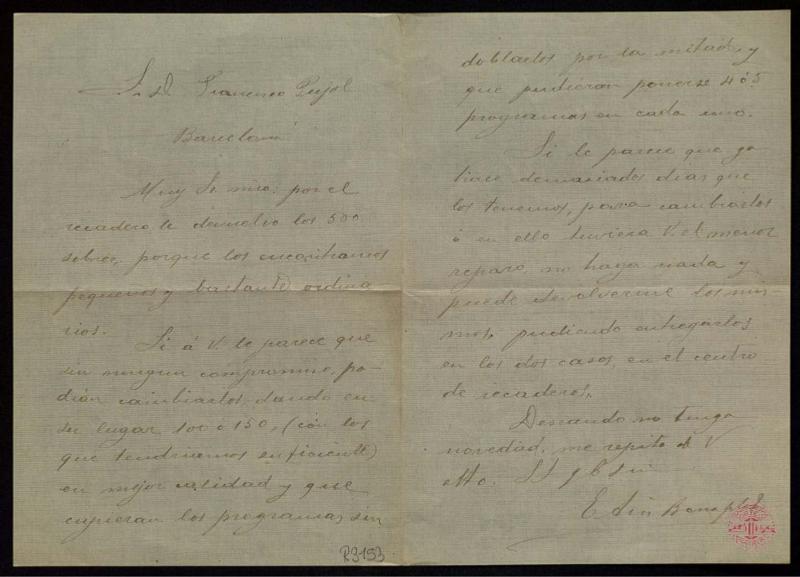 Sr. D. Francisco Pujol
Barcelona
Muy Sr. mio: por el
recadero le devuelvo los 500
sobres, porque los encontramos
pequeños y bastante ordina
rios.
Si á V. le parece que
sin ningun compromiso, po-
dian cambiarlos, dando en
su lugar 100 ó 150, (con los
que tendriamos suficiente)
en mejor calidad y que
cupieran los programas sin
doblarlos por la mitad, y
que pudieran ponerse 4 ó 5
programas en cada uno.
Si le parece que ya
hace demasiados dias que
los tenemos, para cambiarlos
ó en ello tuviera V. el menor
reparo, no haga nada y
puede devolverme los mis-
mos, pudiendo entregarlos
en los dos casos, en el centro
de recaderos.
Deseando no tenga
novedad, me repito de V
atto. SS
R9153